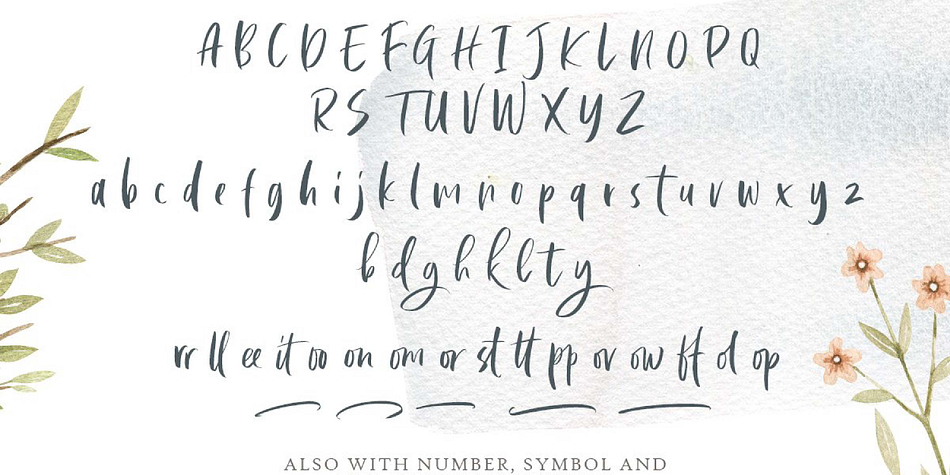 A B C D E F G H I J K L N O P Q
R S T U V W X Y Z
a b c d e f g h i j k l m n o p q r s t u v w x y z
b d g h k l t y
rr ll ee it oo on om or st tt pp ov ow ft ol op
ALSO WITH NUMBER, SYMBOL AND